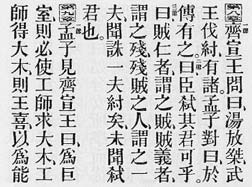 齊宣王問曰湯放桀武
王伐紂有諸孟子對曰於
傳有之曰臣弒其君可乎
曰賊仁者謂之賊賊義者
謂之殘殘賊之人謂之一
夫聞誅一夫紂矣未聞弒
君也。
孟子見齊宣王曰爲巨
室則必使工師求大木工
師得大木則王喜以爲能